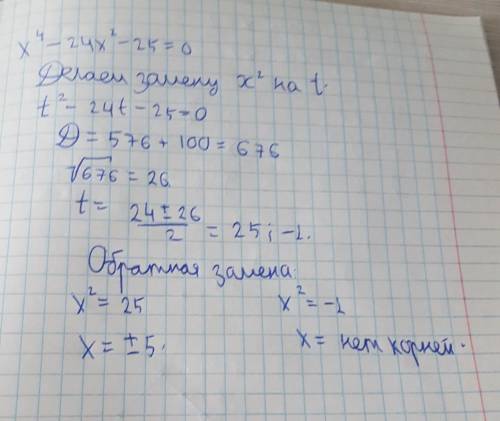 x⁴ - 24x² - 25 = 0
Делаем замену x² на t.
t² - 24t - 25 = 0
D = 576 + 100 = 676
√676 = 26
t = (24 ± 26)/2 = 25; -1.
Обратная замена:
x² = 25 x² = -1
x = ± 5. x = нет корней.